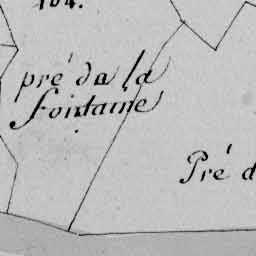 104.
pré da la
fontaine
Pré d